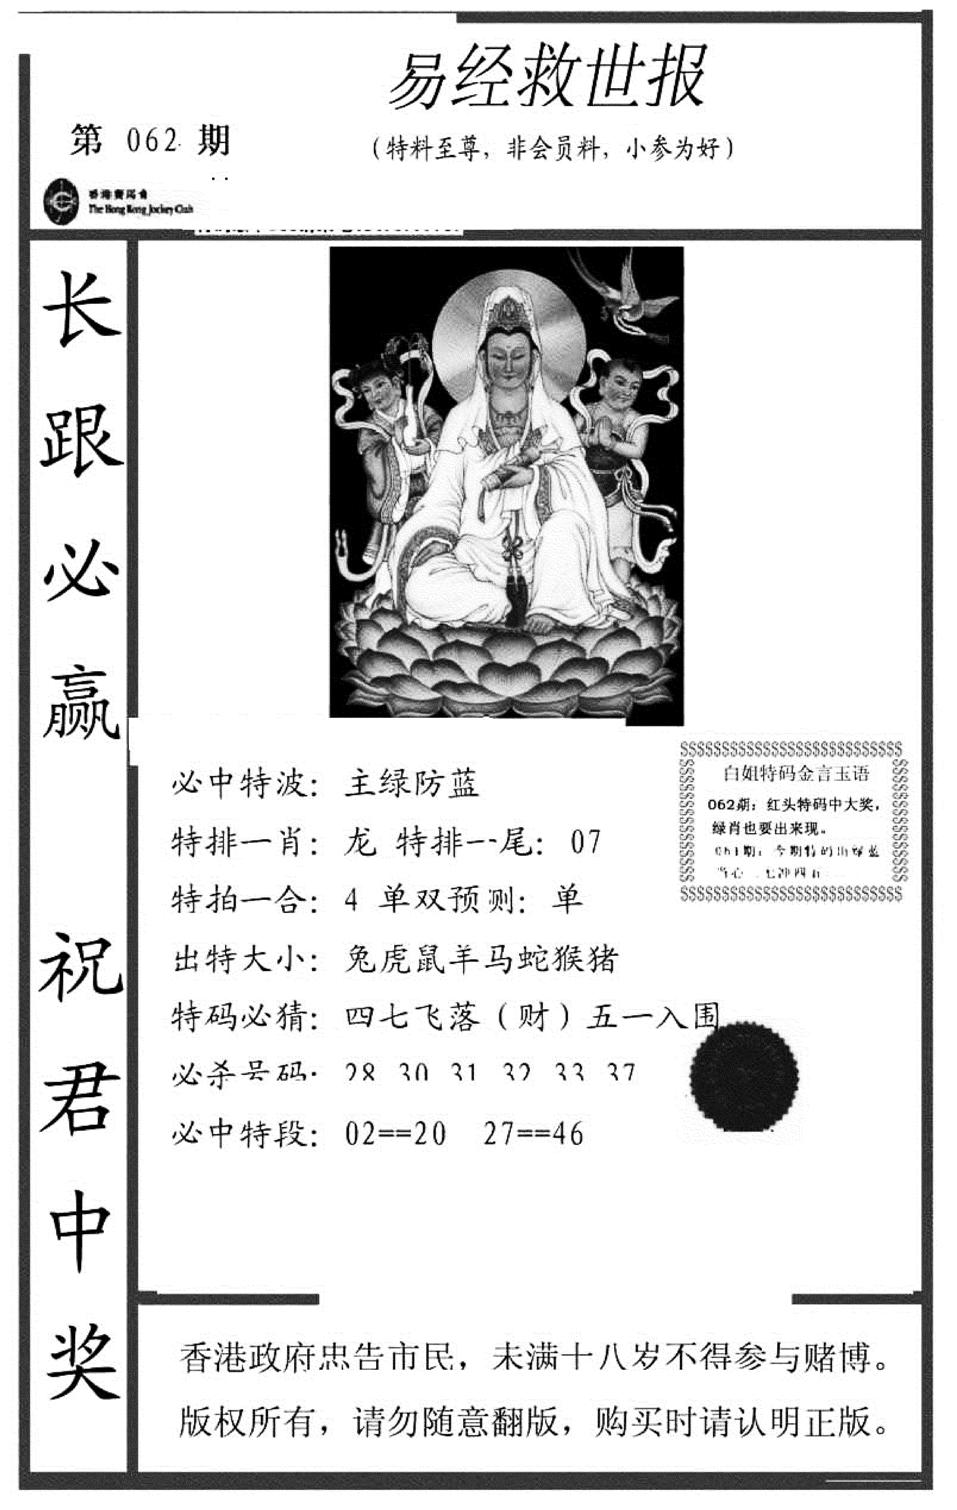 易经救世报
第 062 期
(特料至尊, 非会员料, 小参为好)
香港赛马会
The Hong Kong Jockey Club
长跟必赢 祝君中奖
必中特波: 主绿防蓝
特排一肖: 龙 特排一尾: 07
特拍一合: 4 单双预测: 单
出特大小: 兔虎鼠羊马蛇猴猪
特码必猜: 四七飞落 (财) 五一入围
必杀号码: 28 30 31 32 33 37
必中特段: 02==20 27==46
$$$$$$$$$$$$$$$$$$$$$$$$$$$
白姐特码金言玉语
062期: 红头特码中大奖,
绿肖也要出来现。
$$$$$$$$$$$$$$$$$$$$$$$$$$$
香港政府忠告市民, 未满十八岁不得参与赌博。
版权所有, 请勿随意翻版, 购买时请认明正版。